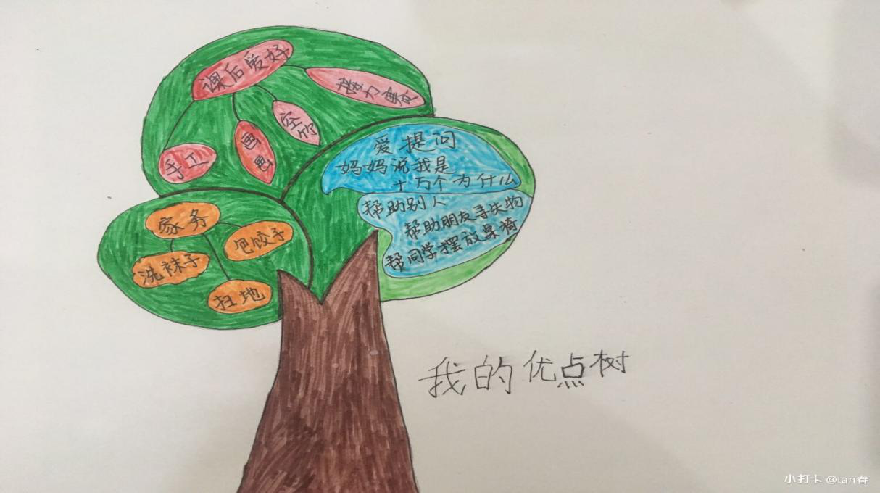 课后爱好
手工
画画
空竹
爱提问
妈妈说我是
十万个为什么
帮助别人
帮助朋友寻失物
帮同学摆放桌椅
家务
包饺子
洗袜子
扫地
我的优点树
小打卡